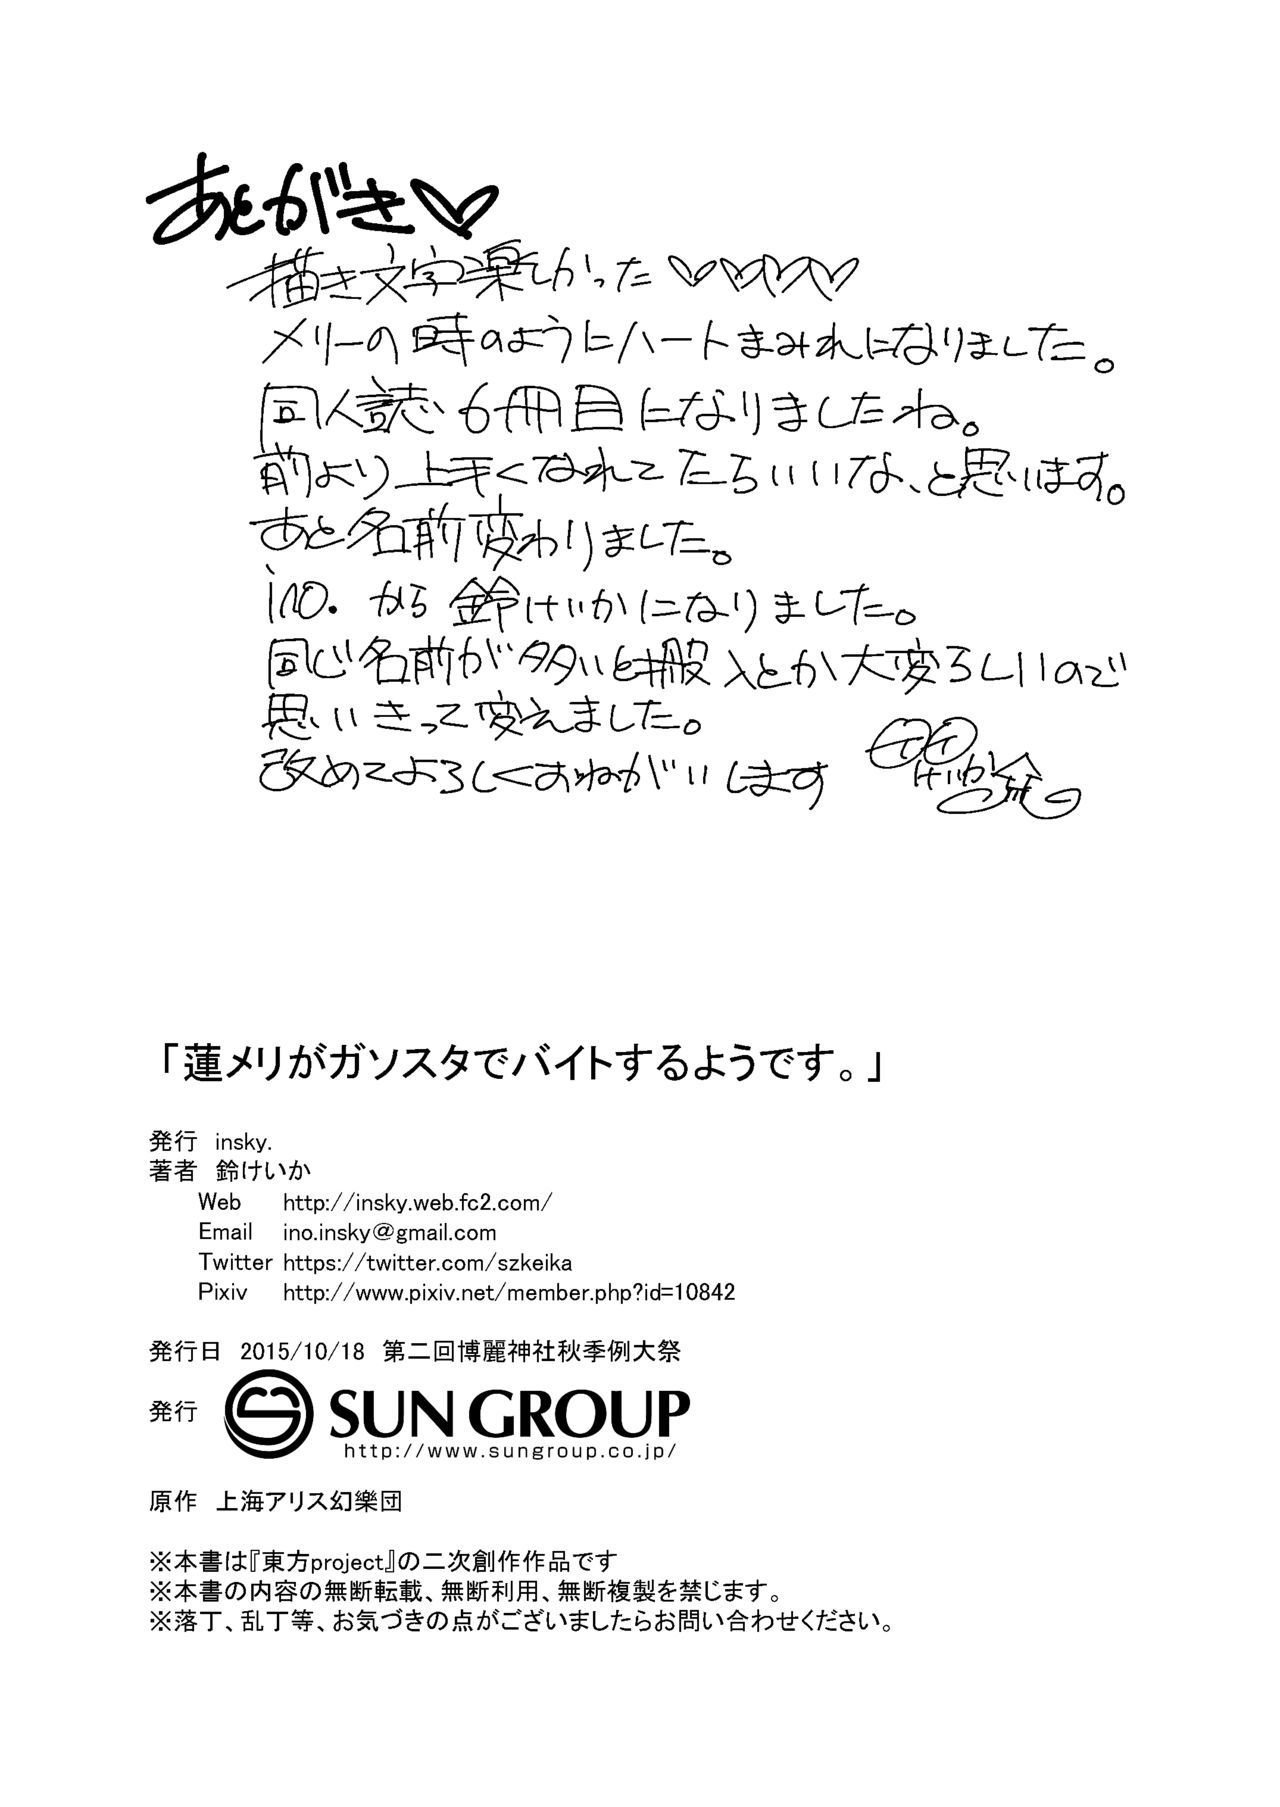 あとがき♡
描き文字楽しかった♡♡♡♡♡
メリーの時のようにハートまみれになりました。
同人誌6冊目になりましたね。
前より上手くなれてたらいいな、と思います。
あと名前変わりました。
ino. から 鈴けいかになりました。
同じ名前が多いと搬入とか大変らしいので
思いきって変えました。
改めてよろしくおねがいします
けいか 鈴
「蓮メリがガソスタでバイトするようです。」
発行 insky.
著者 鈴けいか
Web http://insky.web.fc2.com/
Email ino.insky@gmail.com
Twitter https://twitter.com/szkeika
Pixiv http://www.pixiv.net/member.php?id=10842
発行日 2015/10/18 第二回博麗神社秋季例大祭
発行 SUN GROUP
http://www.sungroup.co.jp/
原作 上海アリス幻樂団
※本書は『東方project』の二次創作作品です
※本書の内容の無断転載、無断利用、無断複製を禁じます。
※落丁、乱丁等、お気づきの点がございましたらお問い合わせください。